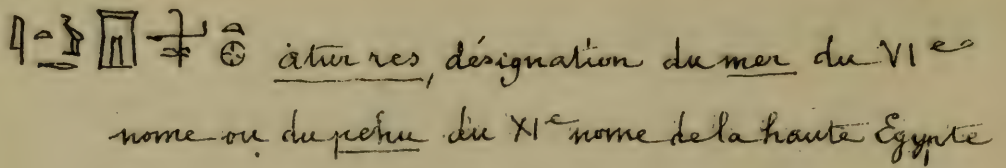 àtur res, désignation du mer du VIe
nome ou du pehu du XIe nome de la haute Egypte